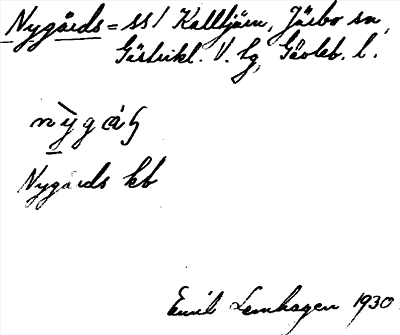 Nygårds = ss/ Kalltjärn, Järbo sn,
Gästrikl. V. tg, Gävleb. l.
nỳgáɧ
Nygårds kb
Emil Lemhagen 1930